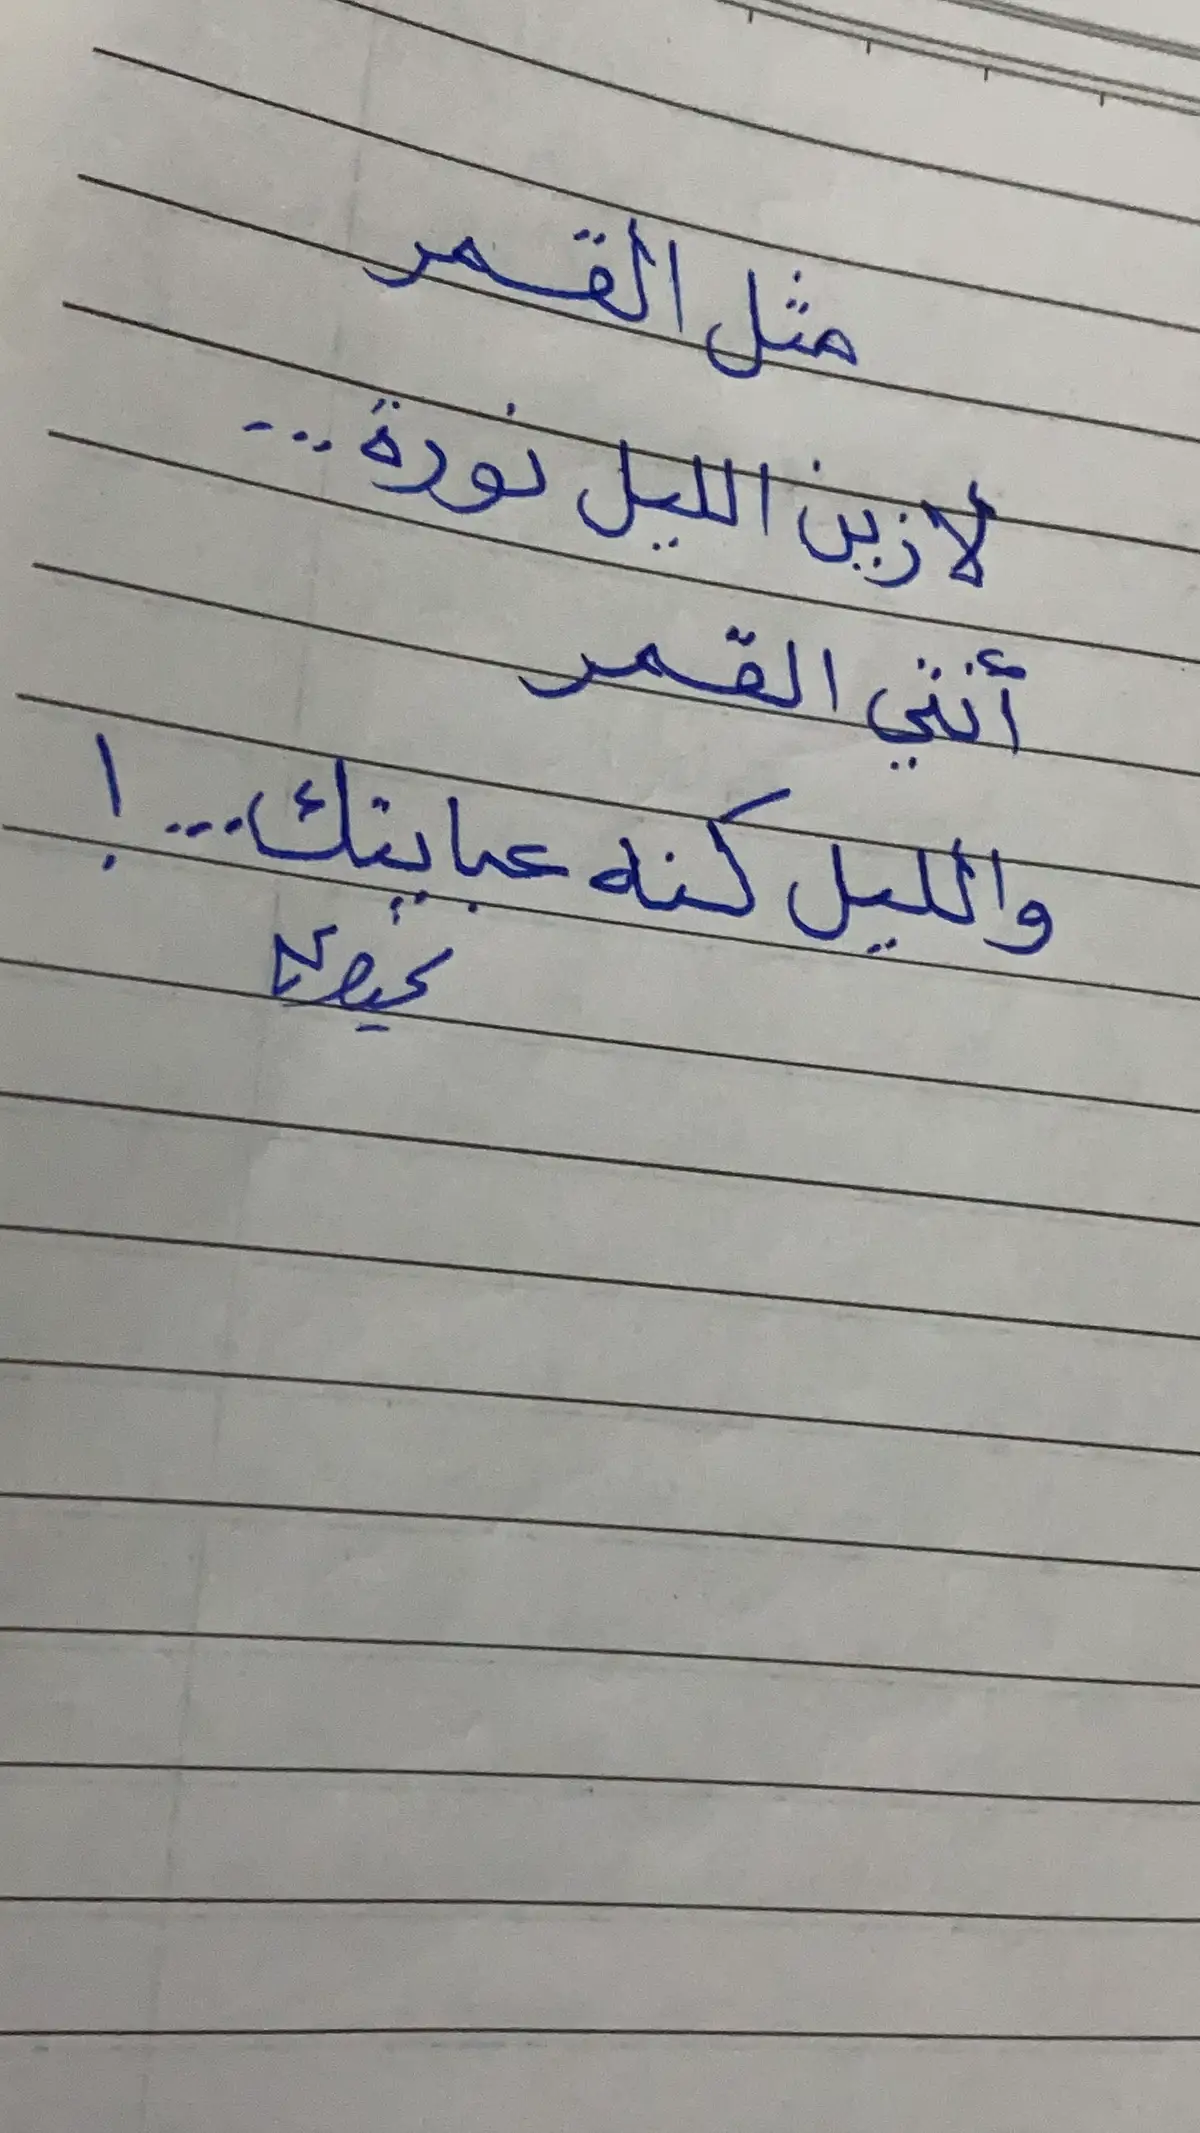 مثل القمر
لازين الليل نورة...
أنتي القمر
والليل كنه عبايتك...!